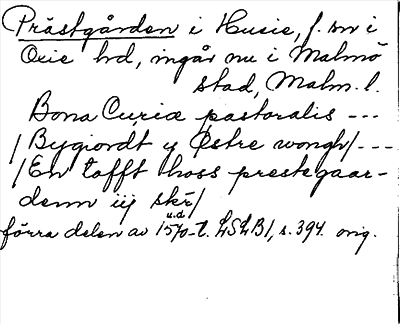 Prästgården i Husie, f. sn i
Oxie hd, ingår nu i Malmö
stad, Malm. l.
Bona Curiæ pastoralis ---
/Bygiordt y Østre wongh/---
/En tofft hoss prestegaar-
denn iij skr/
u.d.
förra delen av 1570-t. LSLB 1, s. 394. orig.